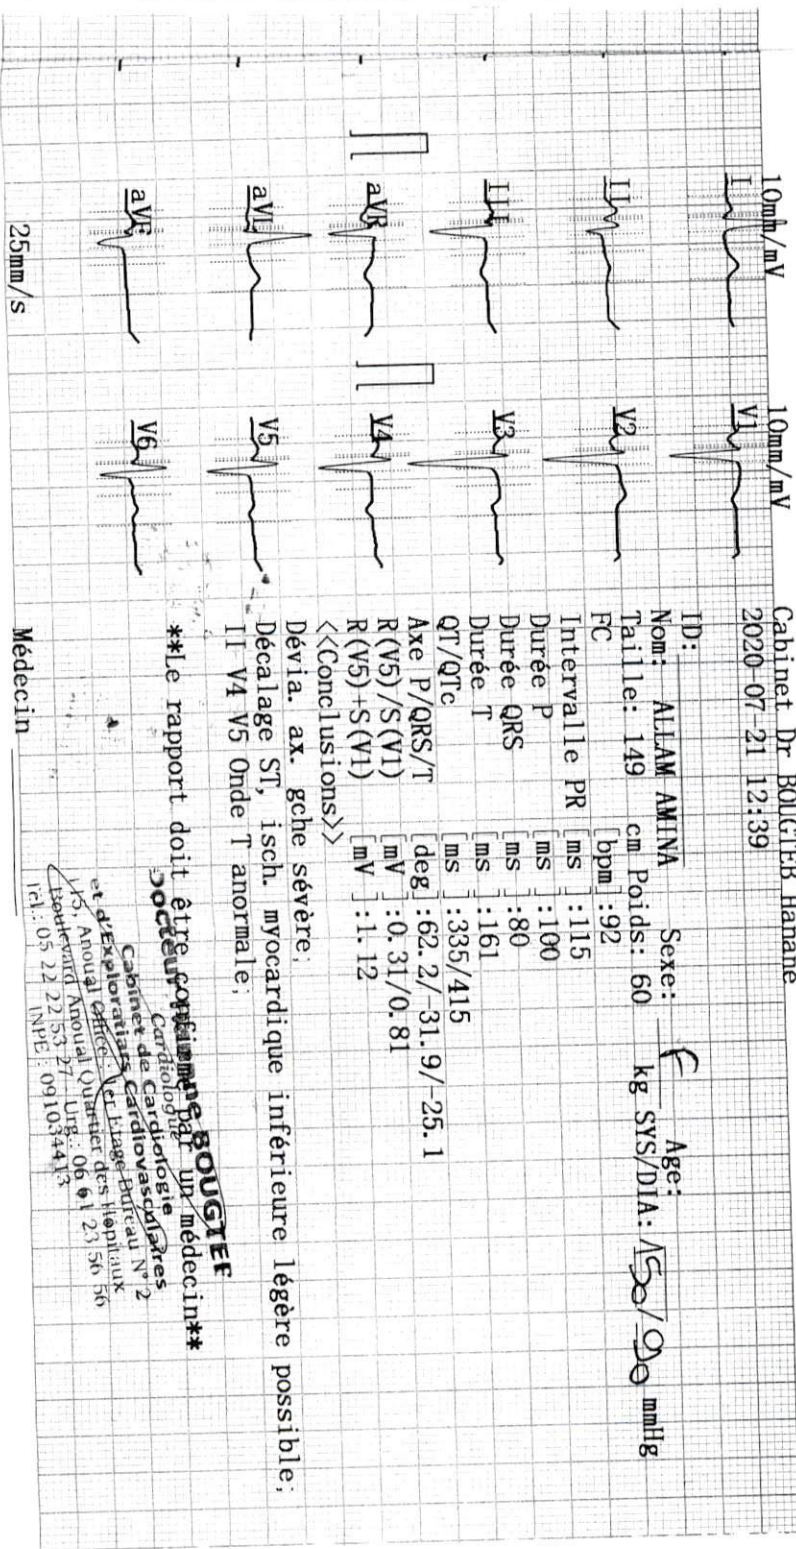 10mm/mV
10mm/mV
Cabinet Dr BOUGTEB Hanane
2020-07-21 12:39
I
II
III
aVR
aVL
aVF
V1
V2
V3
V4
V5
V6
25mm/s
ID:
Nom: ALLAM AMINA Sexe: F Age:
Taille: 149 cm Poids: 60 kg SYS/DIA: 150/90 mmHg
FC [bpm]:92
Intervalle PR [ms]:115
Durée P [ms]:100
Durée QRS [ms]:80
Durée T [ms]:161
QT/QTc [ms]:335/415
Axe P/QRS/T [deg]:62.2/-31.9/-25.1
R(V5)/S(V1) [mV]:0.31/0.81
R(V5)+S(V1) [mV]:1.12
<<Conclusions>>
Dévia. ax. gche sévère;
Décalage ST, isch. myocardique inférieure légère possible;
II V4 V5 Onde T anormale;
**Le rapport doit être confirmé par un médecin**
Docteur BOUGTEF
Cardiologue
Cabinet de Cardiologie
et d'Explorations Cardiovasculaires
Anoual Office 1er Etage Bureau N° 2
Boulevard Anoual Quartier des Hôpitaux
Tél.: 05 22 22 53 27 - Urg.: 06 61 23 56 56
INPE: 091034413
Médecin